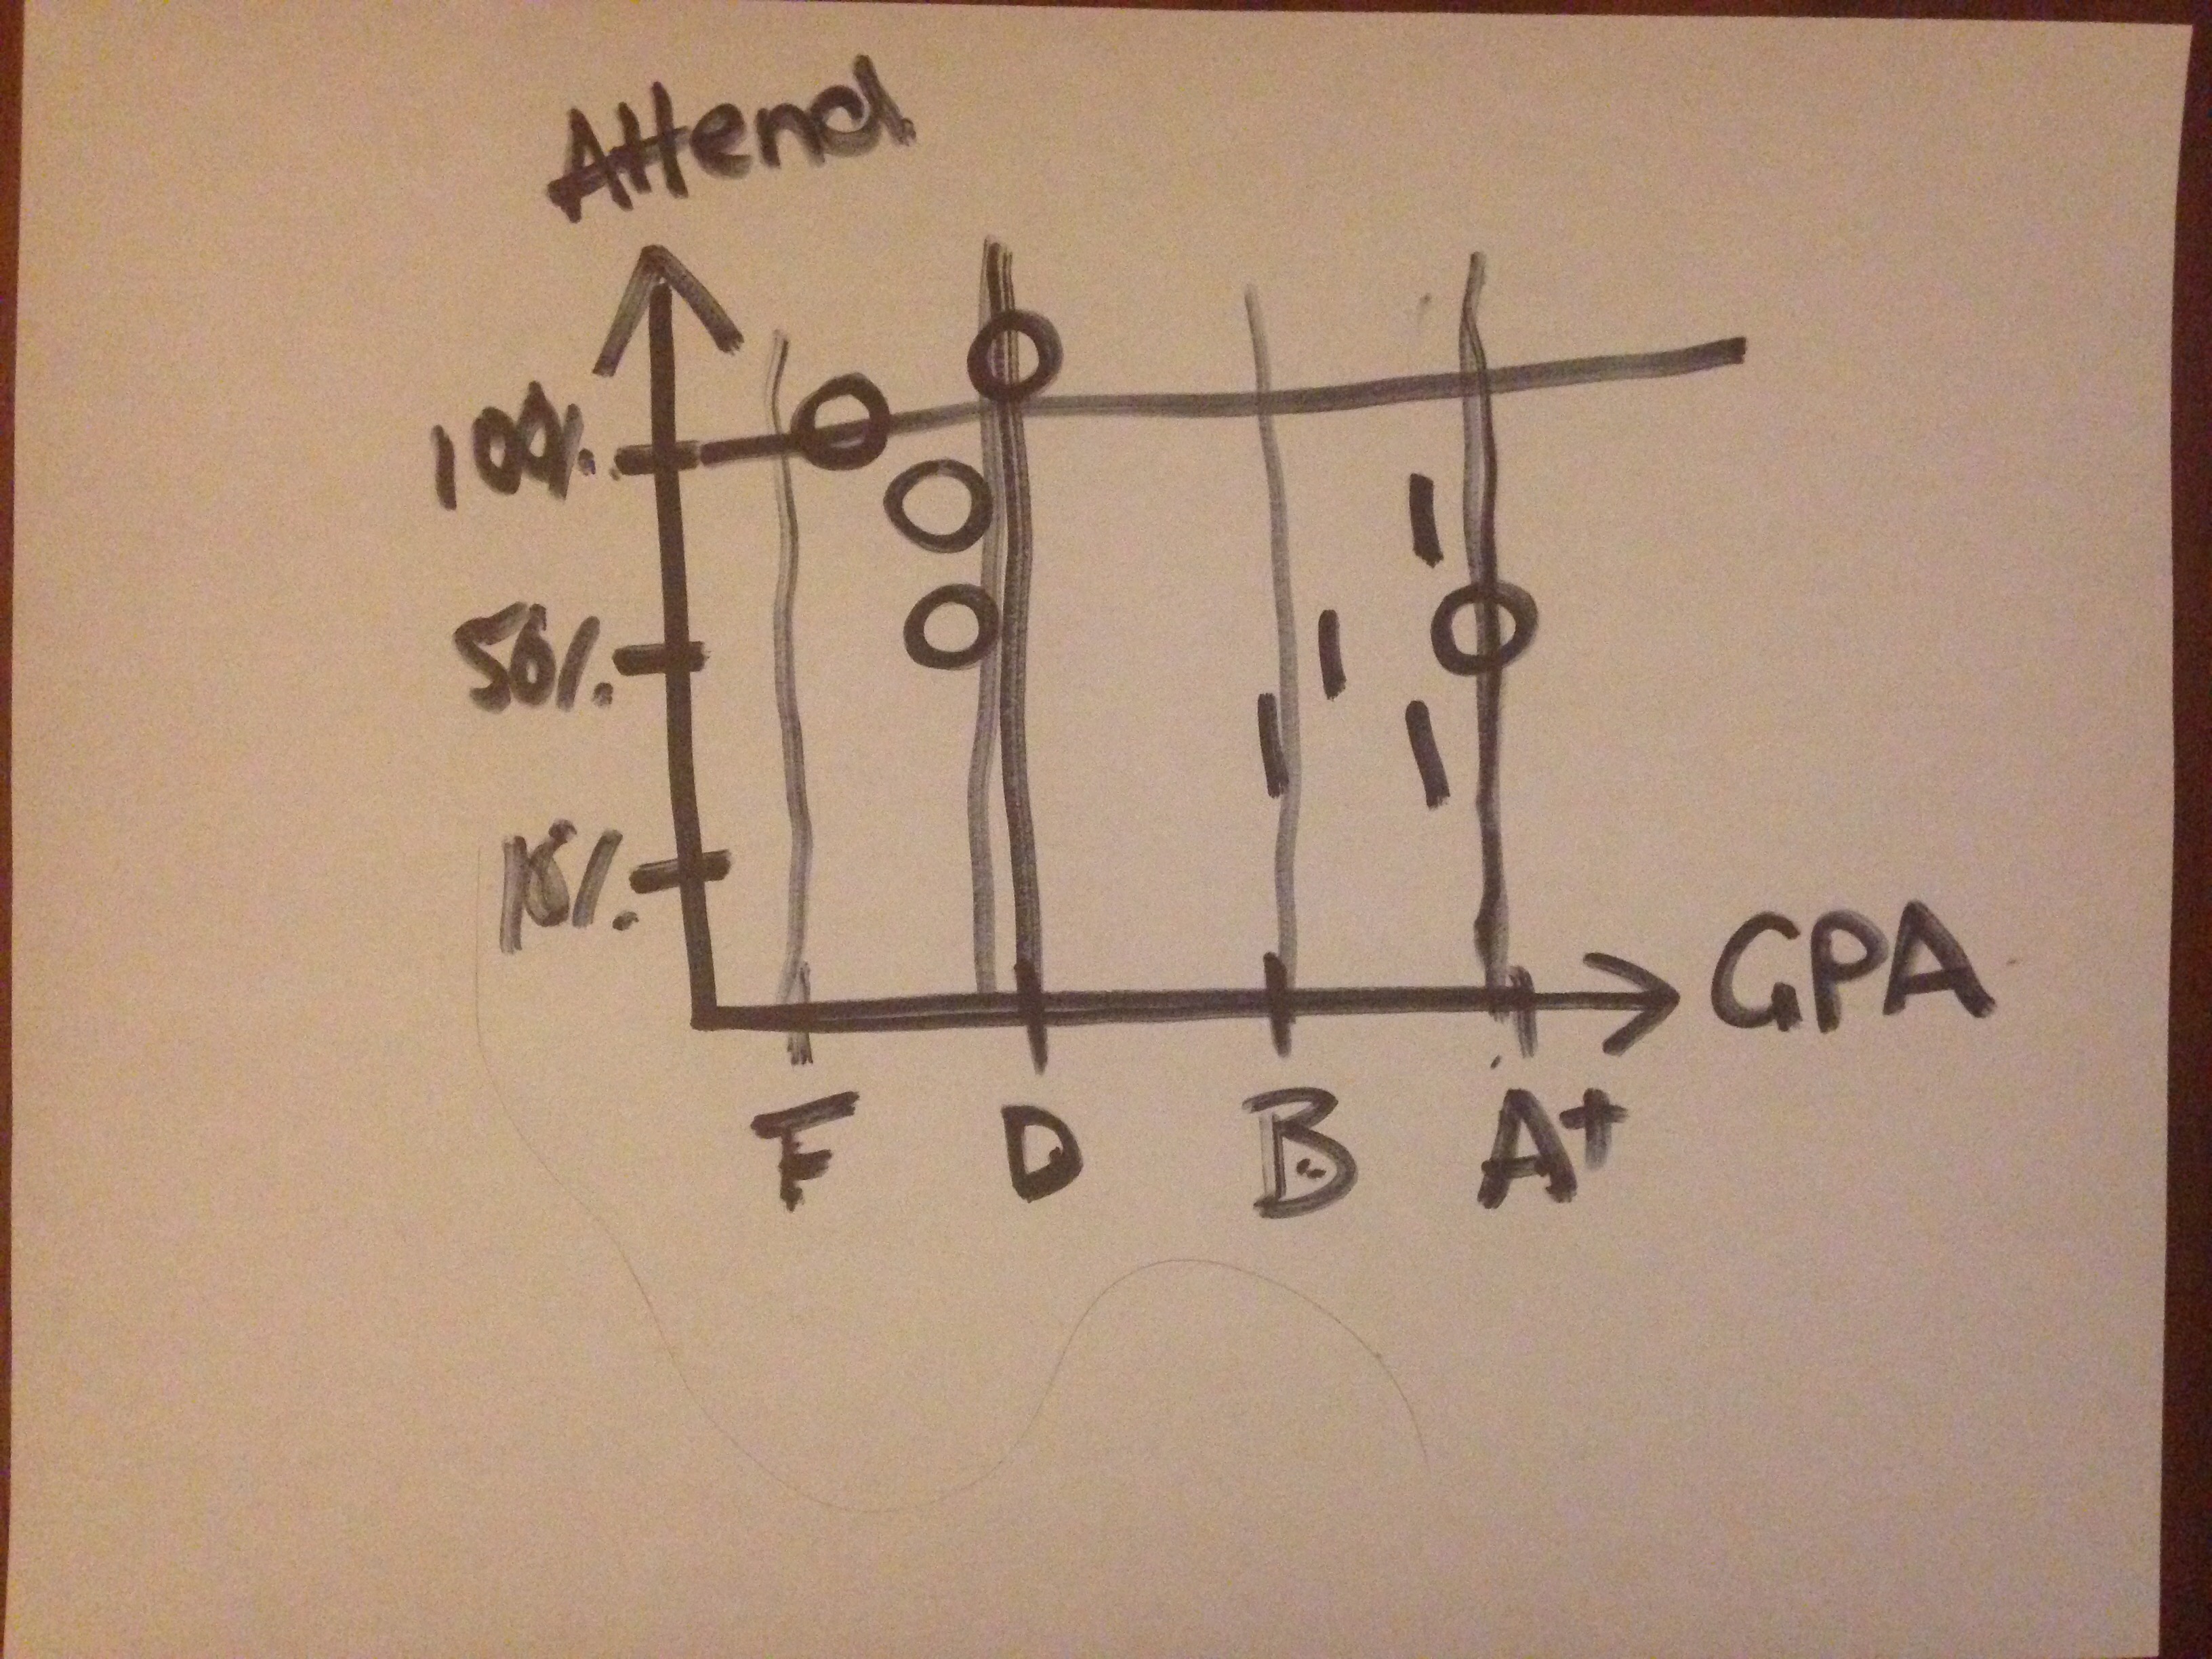 Attend.
100%
50%
GPA
F D B A+